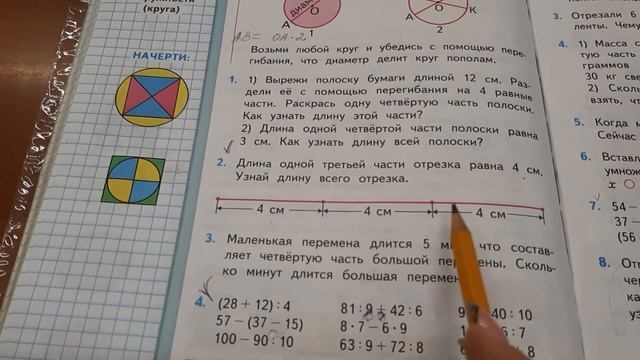 (круга)
НАЧЕРТИ:
А О
1
А О К
2
АВ= ОА·2
Возьми любой круг и убедись с помощью пере-
гибания, что диаметр делит круг пополам.
1. 1) Вырежи полоску бумаги длиной 12 см. Раз-
дели её с помощью перегибания на 4 равные
части. Раскрась одну четвёртую часть полоски.
Как узнать длину этой части?
2) Длина одной четвёртой части полоски равна
3 см. Как узнать длину всей полоски?
2. Длина одной третьей части отрезка равна 4 см.
Узнай длину всего отрезка.
4 см 4 см 4 см
3. Маленькая перемена длится 5 что состав-
ляет четвёртую часть большой Сколь-
ко минут длится большая
4. (28 + 12) : 4 81 : 9 + 42 : 6 40 : 10
57 − (37 − 15) 8 · 7 − 6 · 9 : 7
100 − 90 : 10 63 : 9 + 72 : 8 8
3. Отрезали 6
ленты.
4. 1) Масса
тую часть
граммов
30 кг
2)
взять,
5. Когда
Сейчас
6.
х
7. 54 −
37 −
(56
8.